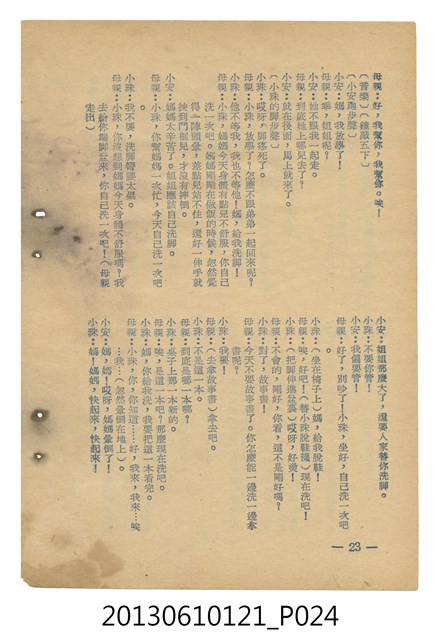 母親：好，我幫你，我幫你。唉！
（音樂）（鐘敲五下）
（小安跑步聲）
小安：媽，我放學了！
母親：噢，姐姐呢？
小安：她不跟我一起走。
母親：到底她上哪兒去了？
小安：就在後面，馬上就來了。
（小珠的脚步聲）
小珠：哎呀，脚痠死了。
母親：小珠，放學了？怎麼不跟弟弟一起回來呢？
小珠：他不等我，我也不等他！媽，給我洗脚！
母親：小珠，媽媽今天身體有點兒不舒服，你自己
洗一次吧。媽媽剛剛在做飯的時候，忽然覺
得一陣頭暈，差點兒站不住，還好一伸手就
挨到門框兒，才沒有摔倒。
小安：媽媽太辛苦了。姐姐應該自己洗脚。
母親：小珠，你幫媽媽一次忙，今天自己洗一次吧
。
小珠：我不要，洗脚聲音太累！
母親：小珠，你沒想到媽媽今天身體不舒服嗎？我
去給你端脚盆來，你自己洗一次吧！（母親
走出）
小安：姐姐那麼大了，還要人家替你洗脚。
小珠：不要你管！
小安：我偏要管！
母親：好了，別吵了！小珠，坐好，自己洗一次吧
。
小珠：（坐在椅子上）媽，給我脫鞋！
母親：唉，好吧！（替小珠脫鞋襪）現在洗吧！
小珠：（把脚伸進盆裏）哎呀，好燙！
母親：不會的，剛好，你看，這不是剛好嗎？
小珠：對了，故事書！
母親：今天不要故事書了。你怎麼能一邊洗一邊拿
書呢？
小珠：我要！
母親：（去拿故事書）拿去吧。
小珠：不是這一本。
母親：到底是哪一本哪？
小珠：桌子上那一本新的。
母親：唉，是這一本吧？那麼現在洗吧。
小珠：媽，你給我洗，我要把這一本看完。
母親：小珠，你，你知道……好，我來，我來…唉
…我…（忽然暈倒在地上）。
小安：媽！媽，哎呀，媽媽暈倒了！
小珠：媽！媽媽，快起來，快起來！
— 23 —
20130610121_P024